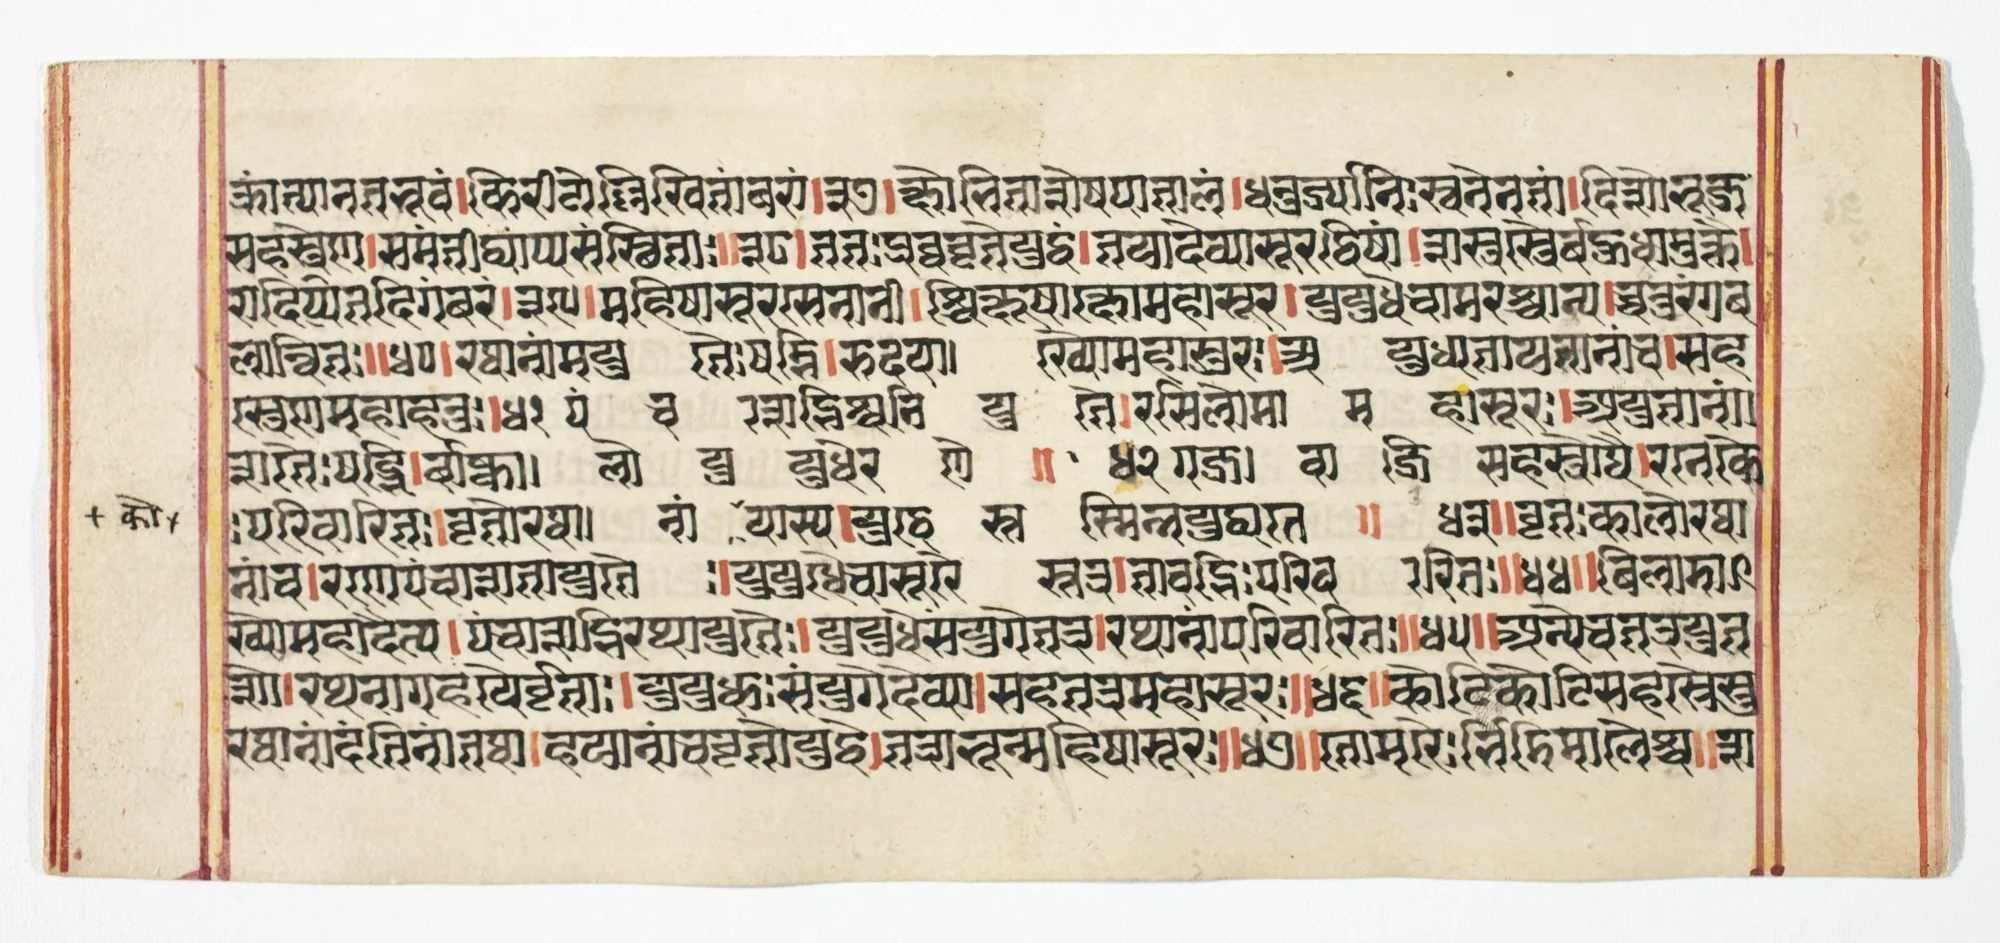 क्रांत्यानतभूवं। किरीटोल्लिखितांबरां। ३७। क्षोभिताशेषपातालां। धनुर्ज्यानिःस्वनेनतां। दिशोभूज
सहस्रेण। समंतीद्व्याप्यसंस्थितां॥ ३८। ततःप्रववृतेयुद्धं। तयादेव्यासूरद्विषां। शस्त्रास्त्रैर्बहुधामुक्तै।
रादिपितदिगंबरं। ३९। महिषासूरसेनानी। श्चिक्षुराक्षोमहासूर। युयुधेचामरश्चान्य। श्चतुरंगब
लान्वितः॥ ४०। रथानामयु तैःषड्भि। रुदग्रा। ख्योमहासुरः। अ युध्यतायुतानांच। सह
स्रेणमहाहनुः। ४१ पं च शद्भिश्चनि यु तै। रसिलोमा म हासूरः। अयुतानां।
शतैःषड्भि। र्बाष्का। लो यु युधेर णे ॥ ४२ गज। वा जि सहस्रौघै। रनेकै
ःपरिवारितः। वृतोरथा। नां यास्य। युद्धे स्त स्मिन्नयुध्यत ॥ ४३॥ वृतःकालोरथा
+ को +
नांच। रणेपंचाशतायुतै ः। युयुधेचासूरे स्तत्र। तावद्भिःपरिव ारितः॥ ४४॥ बिलाला
ख्योमहादैत्य। पंचाशद्भिरथायुतैः। युयुधेसंयुगेतत्र। रथानांपरिवारितः॥ ४५॥ अन्येचतत्रायुत
शो। रथनागहयैर्वृताः। युयुधुःसंयुगेदेव्या। सहतत्रमहासूरः॥ ४६॥ कोटिकोटिसहस्रैस्तु
रथानांदंतिनांतथा। हयानांचवृतोयुद्धे। तत्राभून्महिषासूरः॥ ४७॥ तोमरैःर्भिंदिपालैश्च॥ श